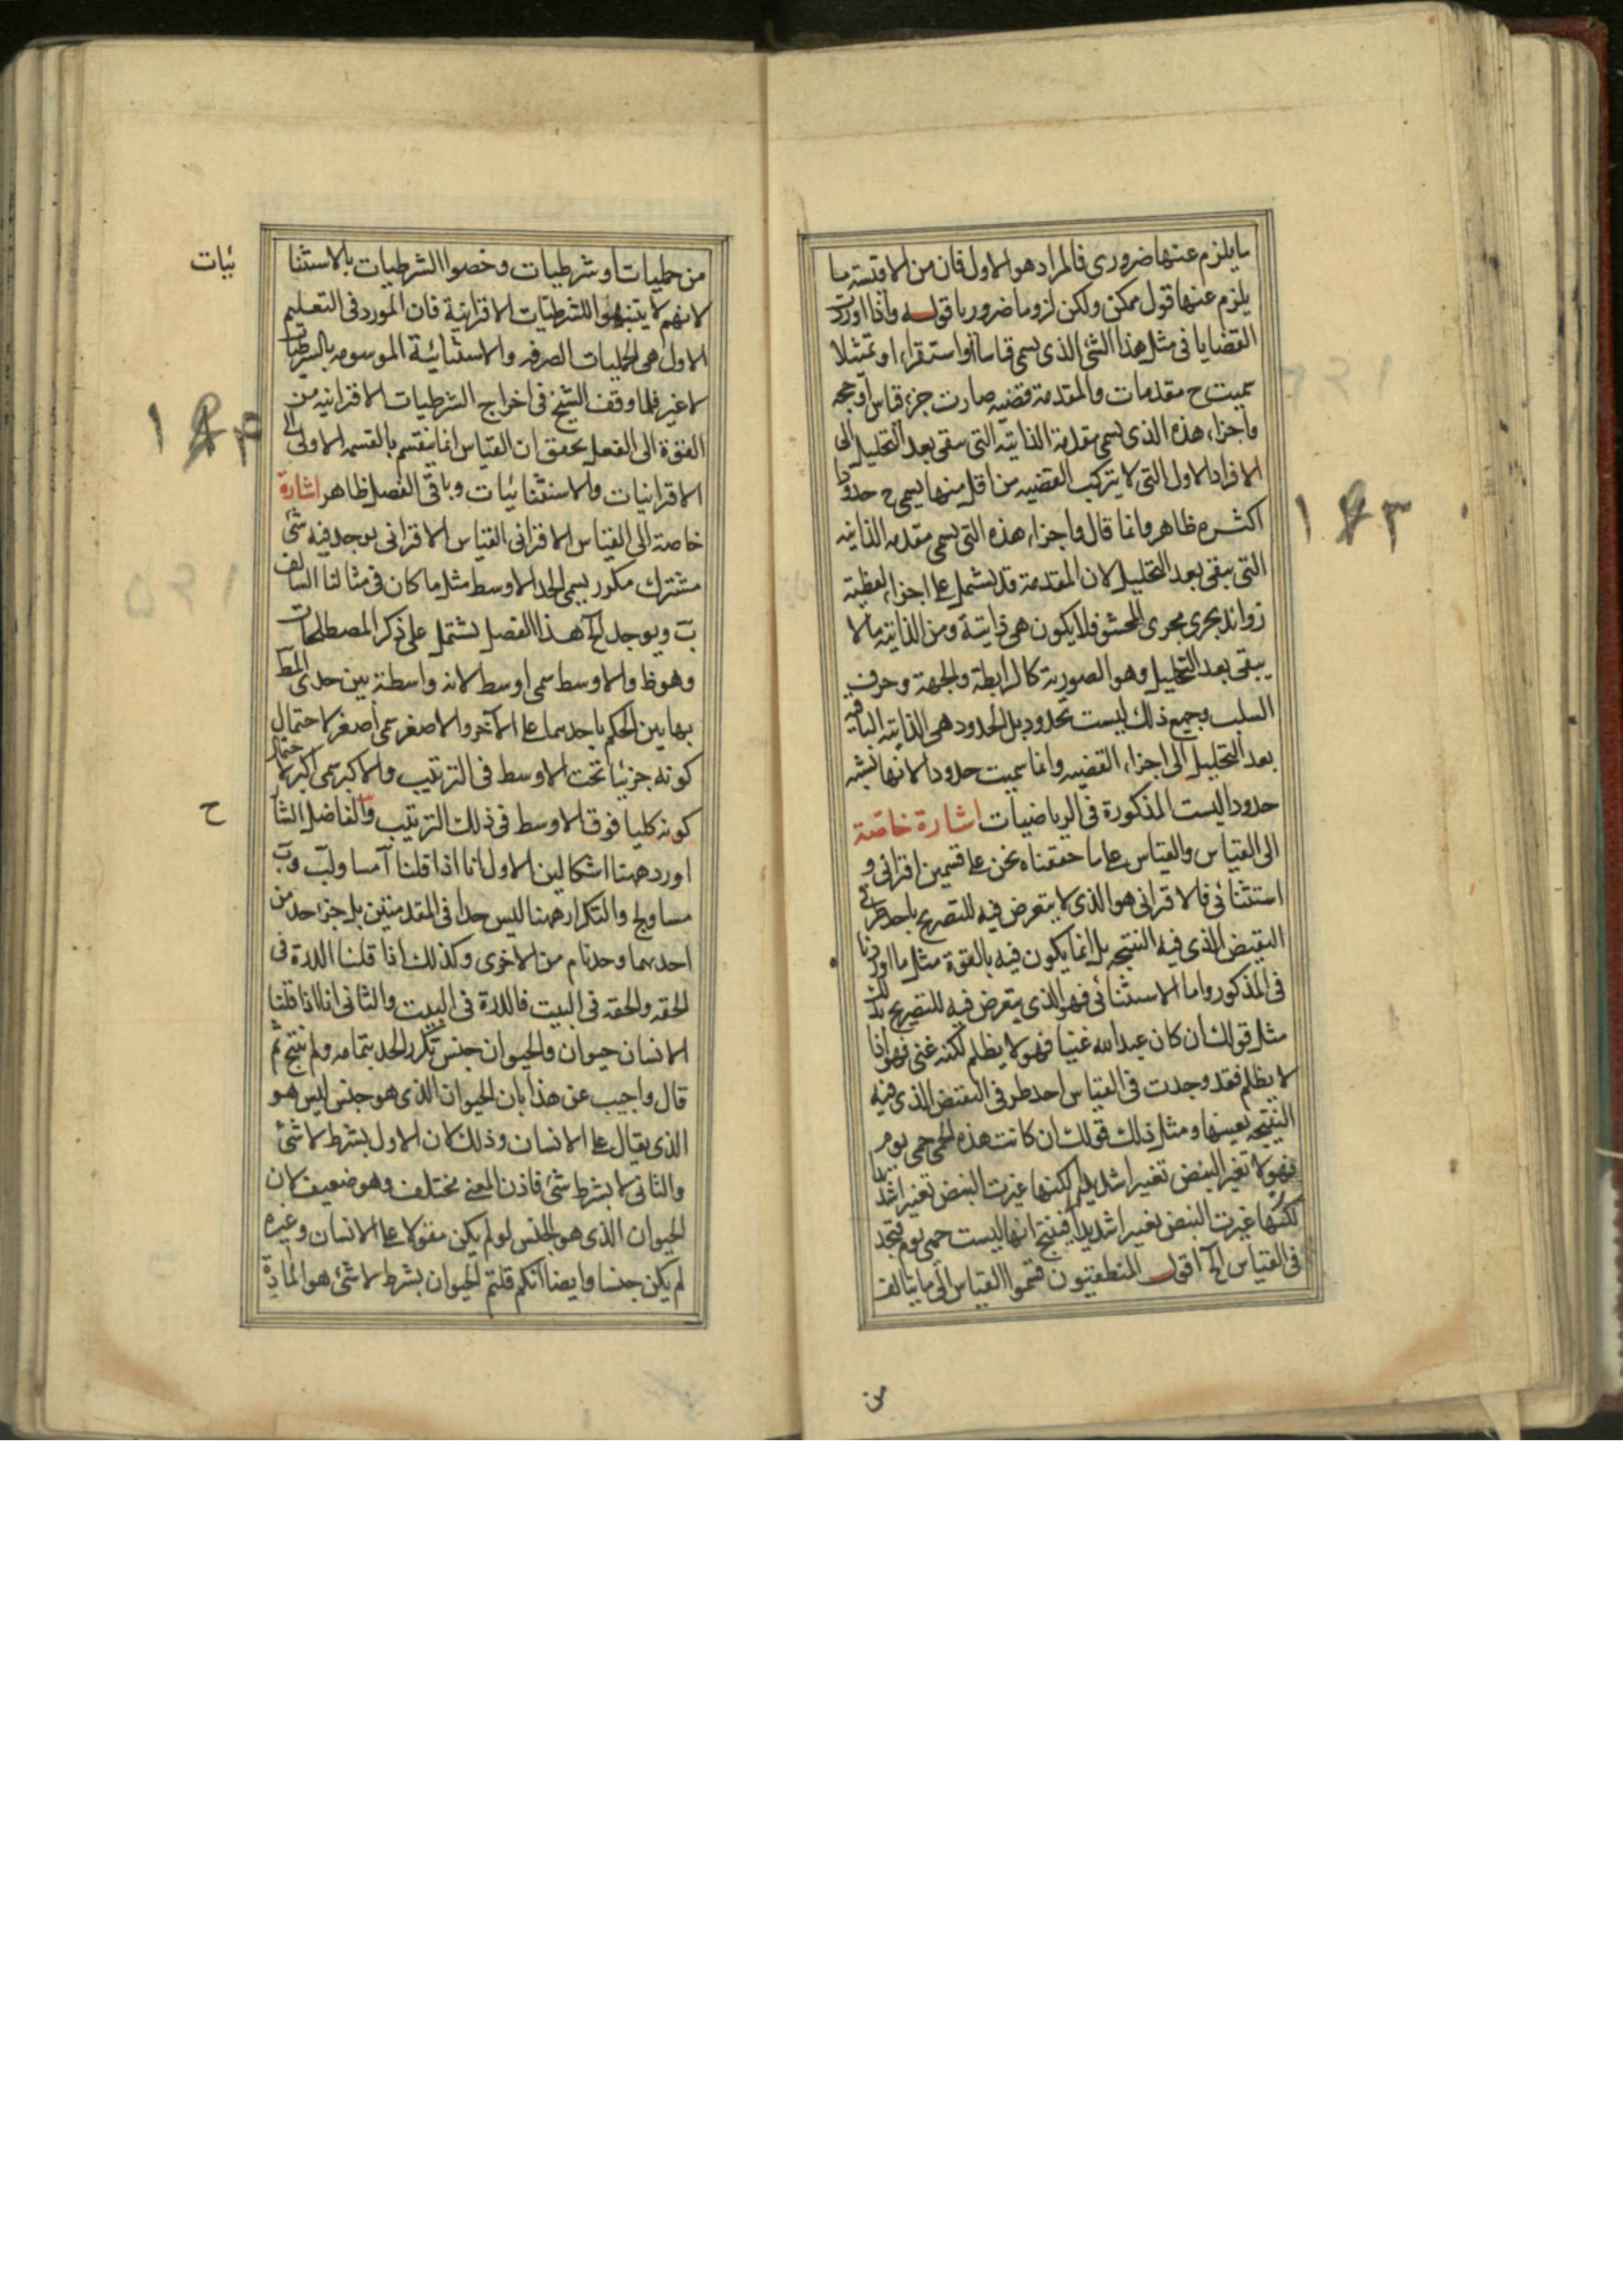 ما يلزم عنها ضروری فالمراد هو الاول فان من الاقيسة ما
يلزم عنها قول ممكن ولكن لزوما ضروريا قوله واذا اوردت
القضايا فی مثل هذا الشئ الذی يسمی قياسا او استقراء او تمثيلا
سميت ح مقدمات والمقدمة قضيه صارت جزء قياس او حجه
واجزاء هذه الذی يسمی مقدمة الذاتية التی تبقی بعد التحليل الی
الافراد الاول التی لا يتركب القضيه من اقل منها يسمی ح حدودا
اكثره ظاهر وانما قال واجزاء هذه التی يسمی مقدمه الذاتيه
التی يبقی بعد التحليل لان المقدمة قد يشمل علی اجزاء لفظية
زوائد يجری مجری الحشو فلا يكون هی ذاتية ومن الذاتية ما لا
يبقی بعد التحليل وهو الصورية كالرابطة والجهة وحرف
السلب وجميع ذلك ليست بحدود بل الحدود هی الذاتية الباقية
بعد التحليل الی اجزاء القضيه وانما سميت حدودا لانها يشبه
حدود اليست المذكورة فی الرياضيات اشارة خاصة
الی القياس والقياس علی ما حققناه نحن علی قسمين اقترانی و
استثنائی فالاقترانی هو الذی لا يتعرض فيه للتصريح باحد طرفی
النقيض الذی فيه النتيجه بل انما يكون فيه بالقوة مثل ما اوردنا
فی المذكور واما الاستثنائی فهو الذی يتعرض فيه للتصريح بذلك
مثل قولك ان كان عبد الله غنيا فهو لا يظلم لكنه غنی فهو اذا
لا يظلم فقد وجدت فی القياس احد طرفی النقيض الذی فيه
النتيجه بعينها ومثل ذلك قولك ان كانت هذه الحمی حمی يوم
فهو لا تغير النبض تغييرا شديدا لكنها غيرت النبض تغييرا شديدا
لكنها غيرت النبض تغييرا شديدا فينتج انها ليست حمی يوم فتجد
فی القياس الخ اقول المنطقيون قسموا القياس الی ما يتالف
من
من حمليات او شرطيات وخصوا الشرطيات بالاستثنا
ئيات
لانهم لا يتنبهوا للشرطيات الاقترانية فان المورد فی التعليم
الاول هی الحمليات الصرفه والاستثنائية الموسومه بالشرطيات
لا غير فلما وقف الشيخ فی اخراج الشرطيات الاقترانيه من
القوة الی الفعل تحقق ان القياس انما ينقسم بالقسمه الاولی الی
الاقترانيات والاستثنائيات وباقی الفصل ظاهر اشارة
خاصة الی القياس الاقترانی القياس الاقترانی يوجد فيه شئ
مشترك مكرر يسمی الحد الاوسط مثل ما كان فی مثالنا السالف
ب ويوجد الخ هذا الفصل يشتمل علی ذكر المصطلحات
وهو ظ والاوسط سمی اوسط لانه واسطة بين حدی المط
بها يبن الحكم باحدهما علی الآخر والاصغر سمی اصغر لاحتمال
كونه جزئيا تحت الاوسط فی الترتيب والاكبر سمی اكبر لاحتمال
كونه كليا فوق الاوسط فی ذلك الترتيب والفاضل الشا
ح
اورد ههنا اشكالين الاول انا اذا قلنا آ مساو لب وب
مساو لج والتكرار ههنا ليس حدا فی المقدمتين بل جزء حد من
احدهما وحد تام من الاخری وكذلك اذا قلنا الدرة فی
الحقه والحقه فی البيت فالدرة فی البيت والثانی انا اذا قلنا
الانسان حيوان والحيوان جنس تكرر الحد بتمامه ولم ينتج ثم
قال واجيب عن هذا بان الحيوان الذی هو جنس ليس هو
الذی يقال علی الانسان وذلك لان الاول بشرط لا شئ
والثانی لا بشرط شئ فاذن المعنی مختلف وهو ضعيف لان
الحيوان الذی هو الجنس لو لم يكن مقولا علی الانسان وغيره
لم يكن جنسا وايضا انكم قلتم الحيوان بشرط لا شئ هو المادة